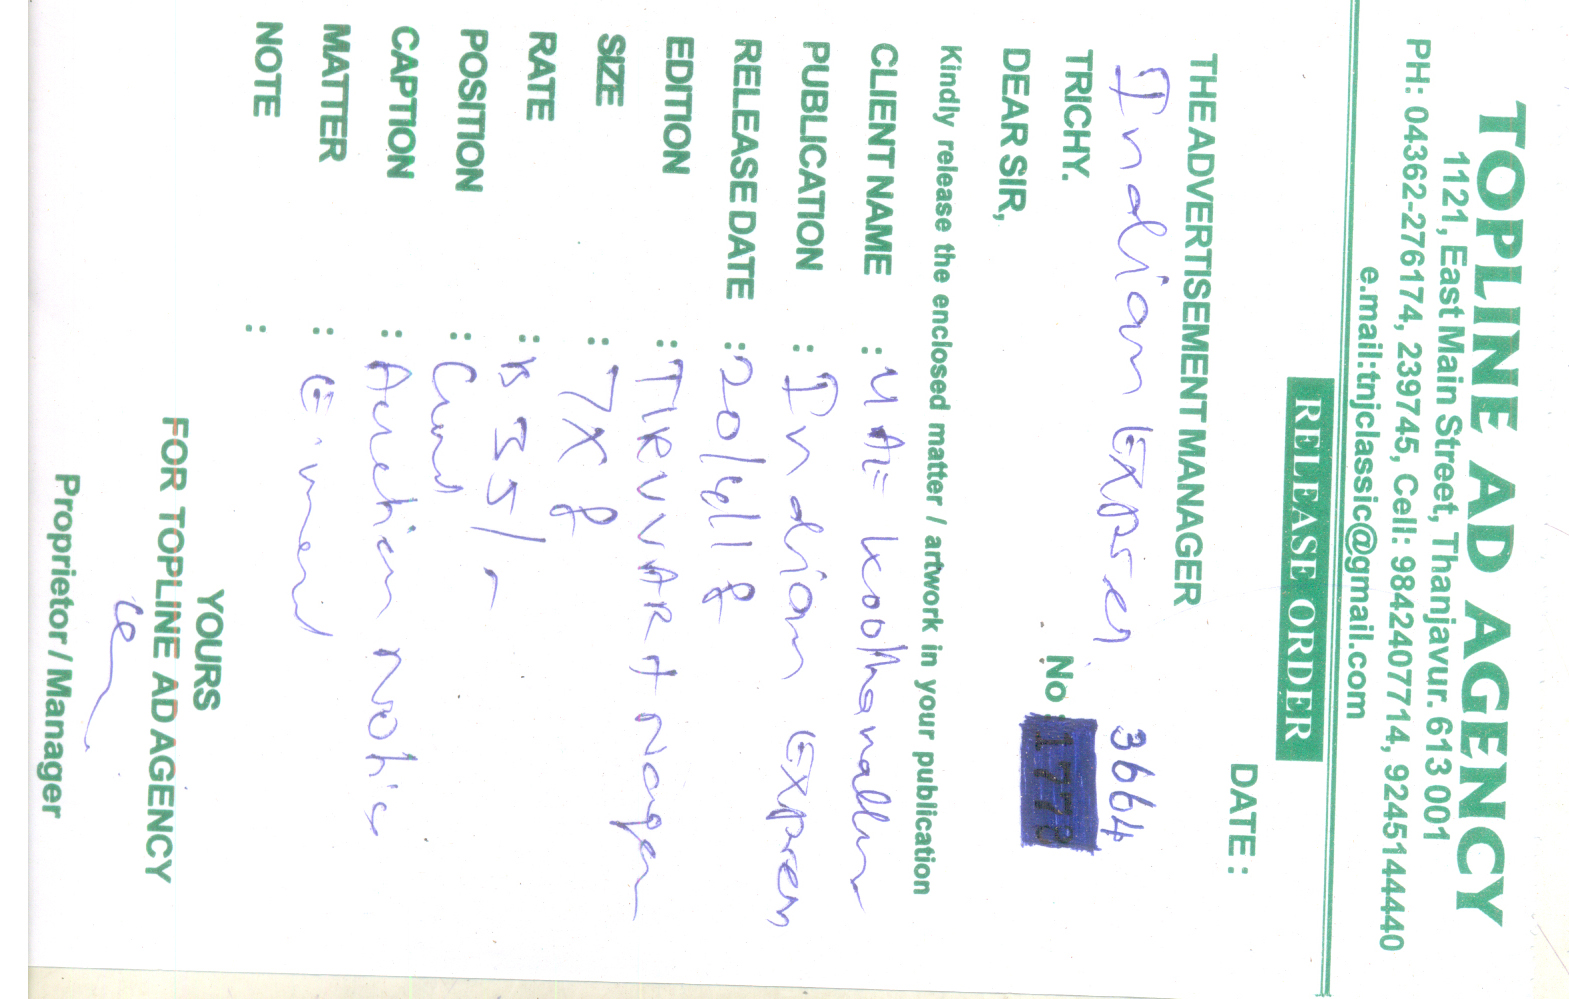 TOPLINE AD AGENCY
1121, East Main Street, Thanjavur. 613 001
PH: 04362-276174, 239745, Cell: 9842407714, 9245144440
e.mail:tnjclassic@gmail.com
RELEASE ORDER
DATE :
THE ADVERTISEMENT MANAGER
Indian Express 3664
TRICHY. No : 1778
DEAR SIR,
Kindly release the enclosed matter / artwork in your publication
CLIENT NAME : Koothanallur
PUBLICATION : Indian Express
RELEASE DATE : 20/
EDITION : TIRVVAR + Nagai
SIZE : 7x8
RATE : 35/-
POSITION :
CAPTION : Auction notice
MATTER : E.mail
NOTE :
YOURS
FOR TOPLINE AD AGENCY
Proprietor / Manager